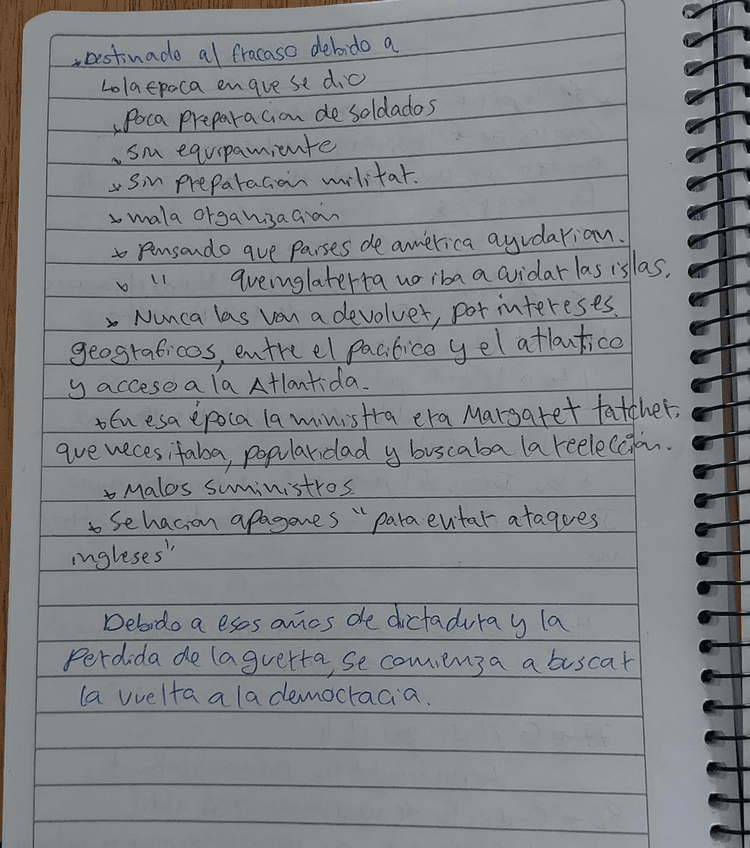 → Destinado al fracaso debido a
↳ la época en que se dio
→ Poca preparación de soldados
→ sin equipamiento
→ Sin preparación militar.
→ mala organización
→ Pensando que países de américa ayudarían.
→ " que inglaterra no iba a cuidar las islas.
→ Nunca las van a devolver, por intereses
geograficos, entre el pacifico y el atlantico
y acceso a la Atlantida.
→ En esa época la ministra era Margaret tatcher,
que necesitaba, popularidad y buscaba la reelección.
→ Malos suministros
→ Se hacían apagones "para evitar ataques
ingleses"
Debido a esos años de dictadura y la
Perdida de la guerra, se comienza a buscar
la vuelta a la democracia.